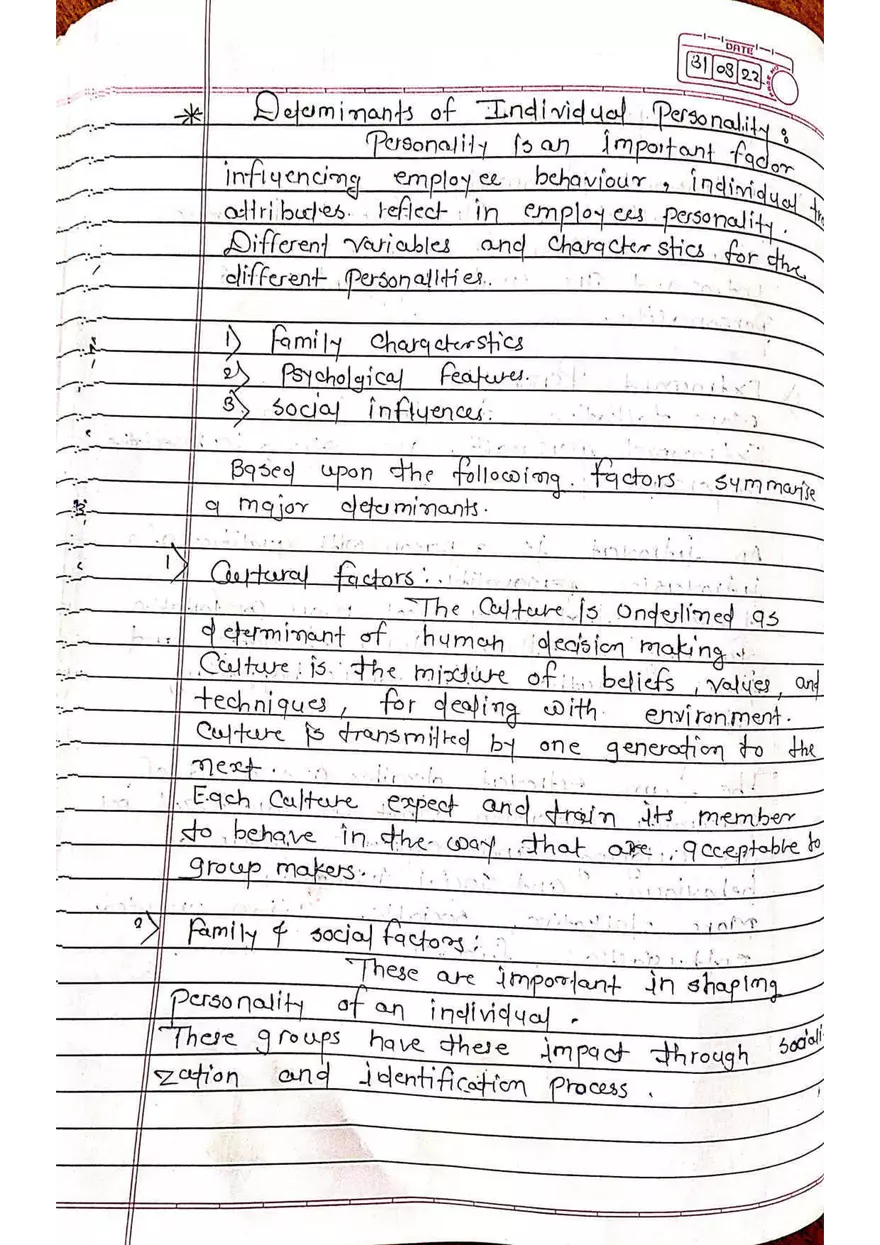 DATE
31 08 22
* Determinants of Individual Personality:
Personality is an important factor
influencing employee behaviour, individual
attributes reflect in employees personality.
Different variables and characterstics for the
different personalities.
1) family characterstics
2) Psycholgical features.
3) social influences.
Based upon the following factors summarise
a major determinants.
1) Cultural factors:
The Culture is Underlined as
determinant of human decision making.
Culture is the mixture of beliefs, values, and
techniques, for dealing with environment.
Culture is transmitted by one generation to the
next.
Each Culture expect and train its member
to behave in the way that are acceptable to
group makers.
2) family & social factors:
These are important in shaping
personality of an individual.
These groups have these impact through sociali-
zation and identification process.